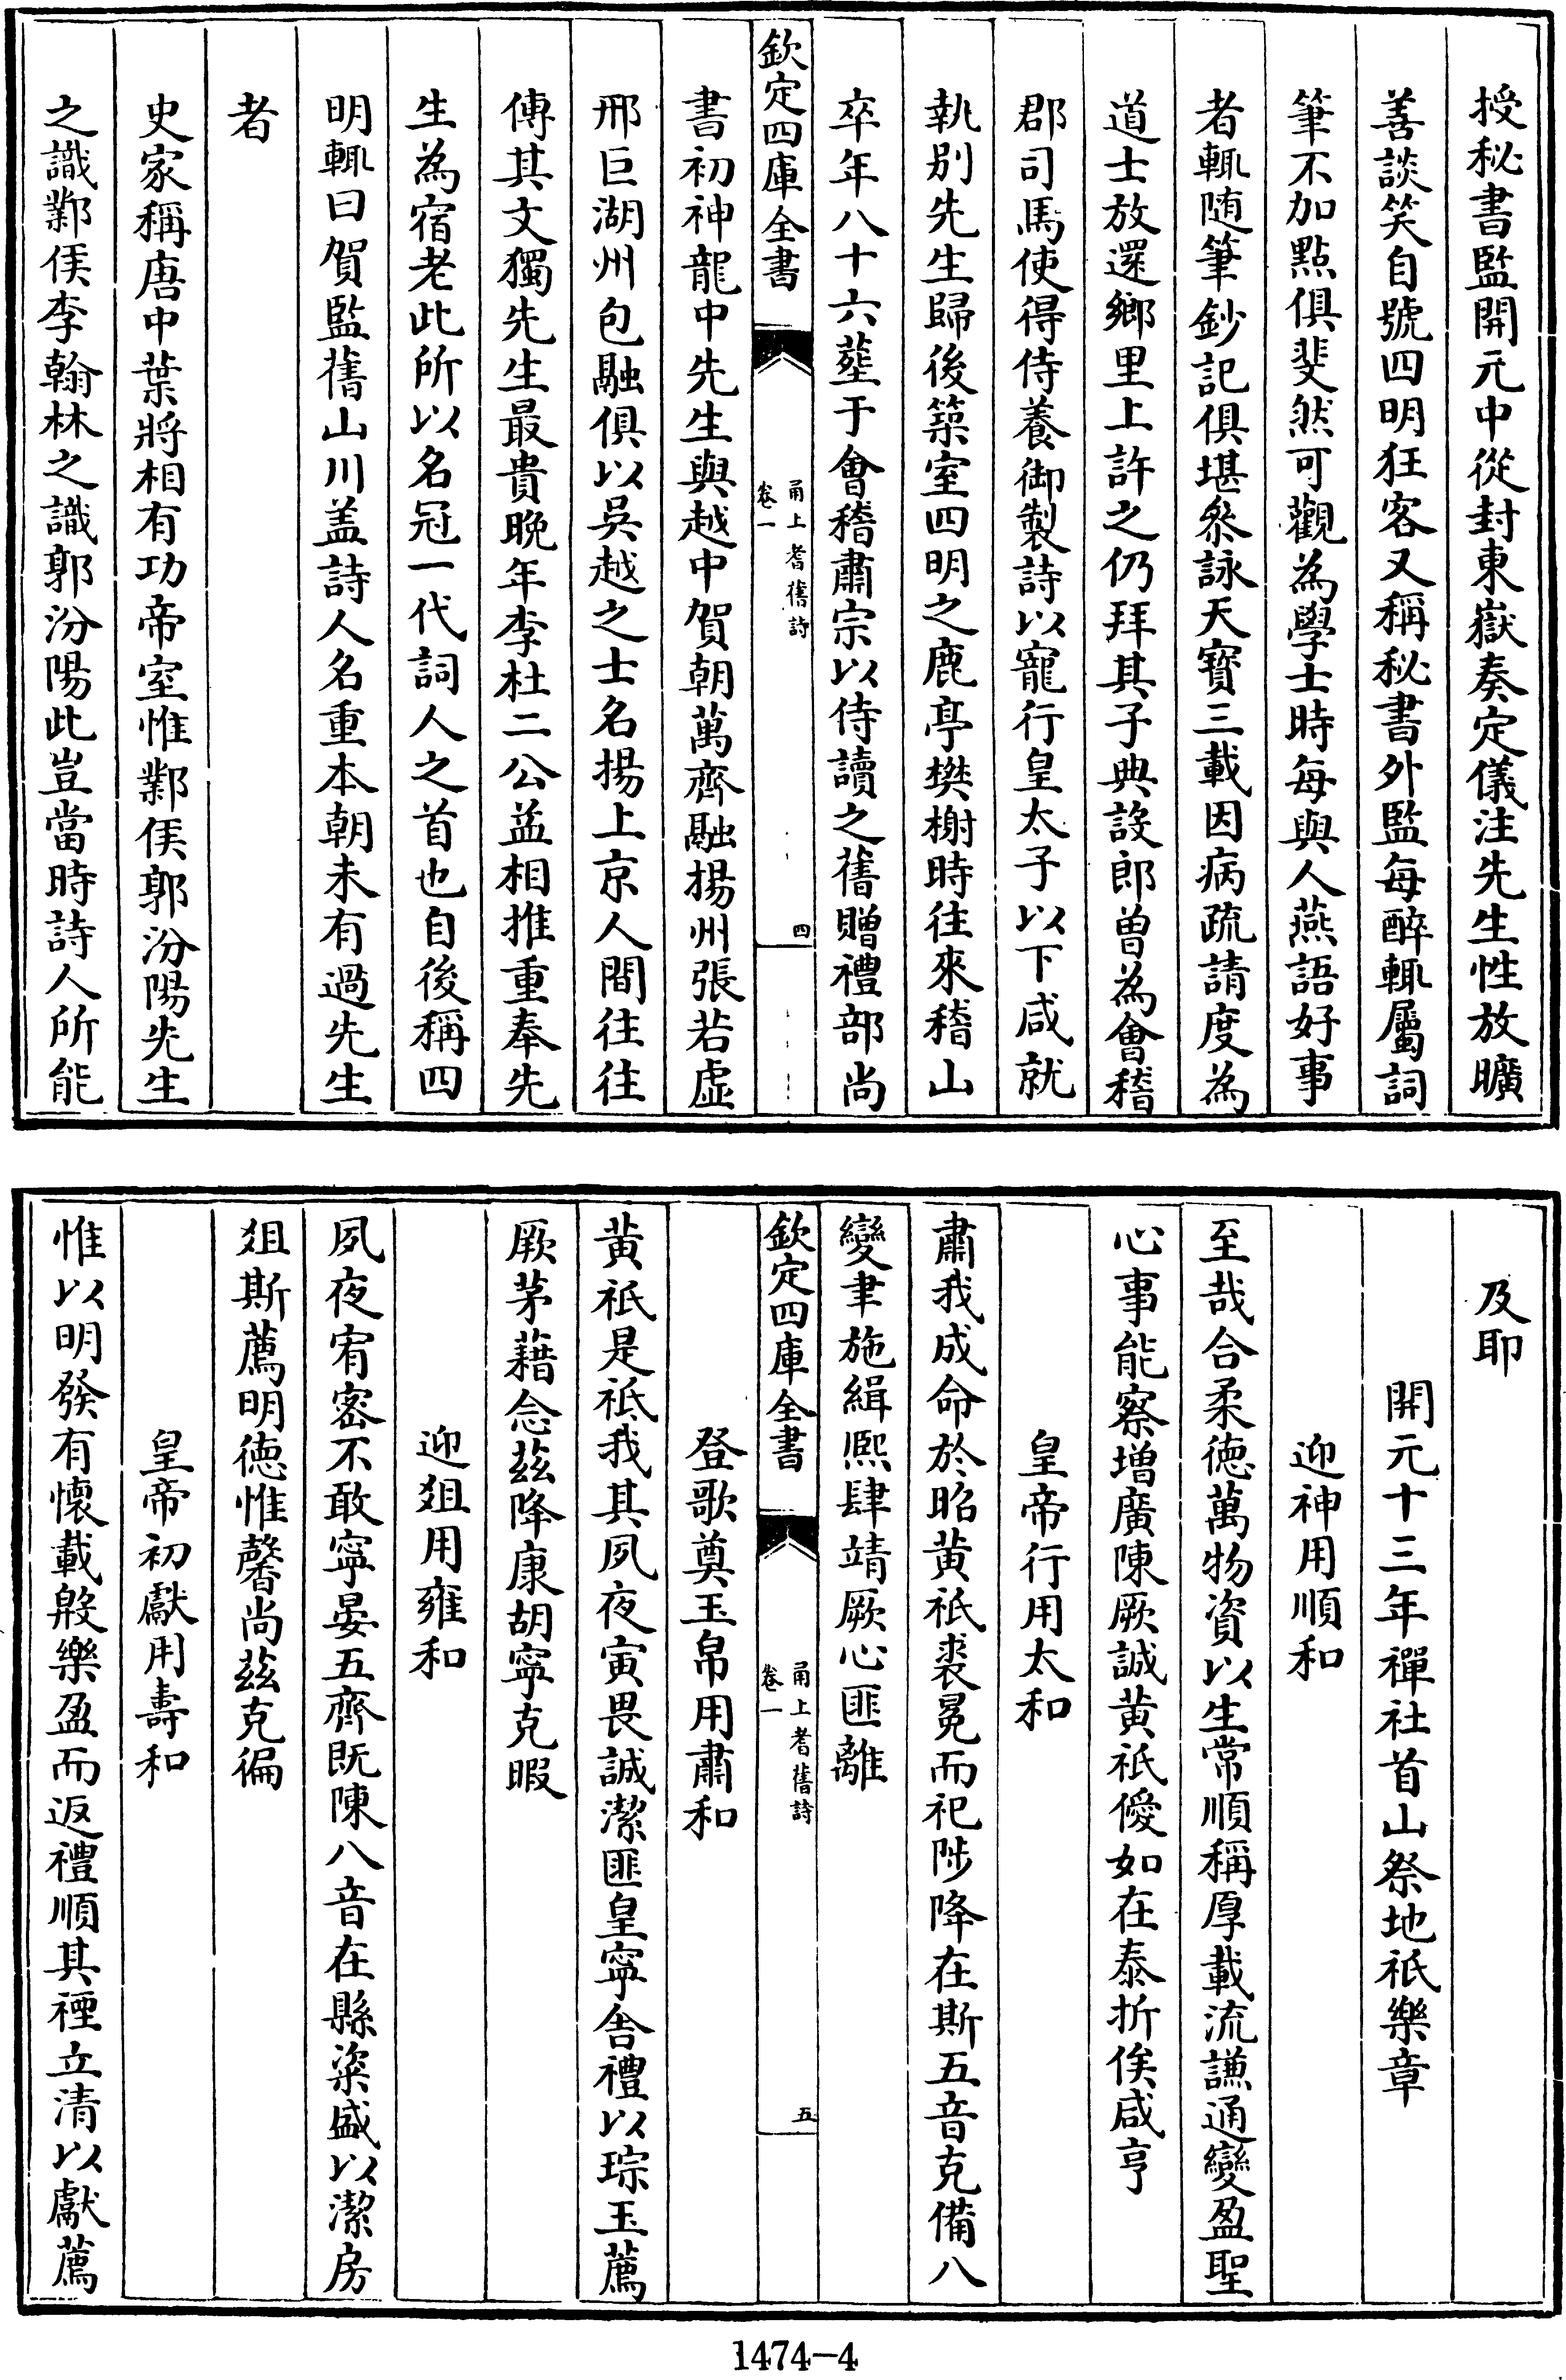 授秘書監開元中從封東嶽奏定儀注先生性放曠
善談笑自號四明狂客又稱秘書外監每醉輒屬詞
筆不加點俱斐然可觀為學士時每與人燕語好事
者輒随筆鈔記俱堪叅詠天寳三載因病疏請度為
道士放還鄉里上許之仍拜其子典設郎曽為會稽
郡司馬使得侍養御製詩以寵行皇太子以下咸就
執别先生歸後築室四明之鹿亭樊榭時往來稽山
卒年八十六塟于會稽肅宗以侍讀之舊贈禮部尚
欽定四庫全書
甬上耆舊詩
卷一
四
書初神龍中先生與越中賀朝萬齊融揚州張若虚
邢巨湖州包融俱以吳越之士名揚上京人間往往
傳其文獨先生最貴晚年李杜二公益相推重奉先
生為宿老此所以名冠一代詞人之首也自後稱四
明輒曰賀監舊山川盖詩人名重本朝未有過先生
者
史家稱唐中葉將相有功帝室惟鄴侯郭汾陽先生
之識鄴侯李翰林之識郭汾陽此豈當時詩人所能
及耶
開元十三年禪社首山祭地祇樂章
迎神用順和
至哉合柔德萬物資以生常順稱厚載流謙通變盈聖
心事能察增廣陳厥誠黄祇僾如在泰折俟咸亨
皇帝行用太和
肅我成命於昭黄祇裘冕而祀陟降在斯五音克備八
變聿施緝熙肆靖厥心匪離
欽定四庫全書
甬上耆舊詩
卷一
五
登歌奠玉帛用肅和
黄祇是祇我其夙夜寅畏誠潔匪皇寜舍禮以琮玉薦
厥茅藉念兹降康胡寜克暇
迎俎用雍和
夙夜宥密不敢寜晏五齊既陳八音在縣粢盛以潔房
俎斯薦明德惟馨尚兹克徧
皇帝初獻用壽和
惟以明發有懐載殷樂盈而返禮順其禋立清以獻薦
1474-4